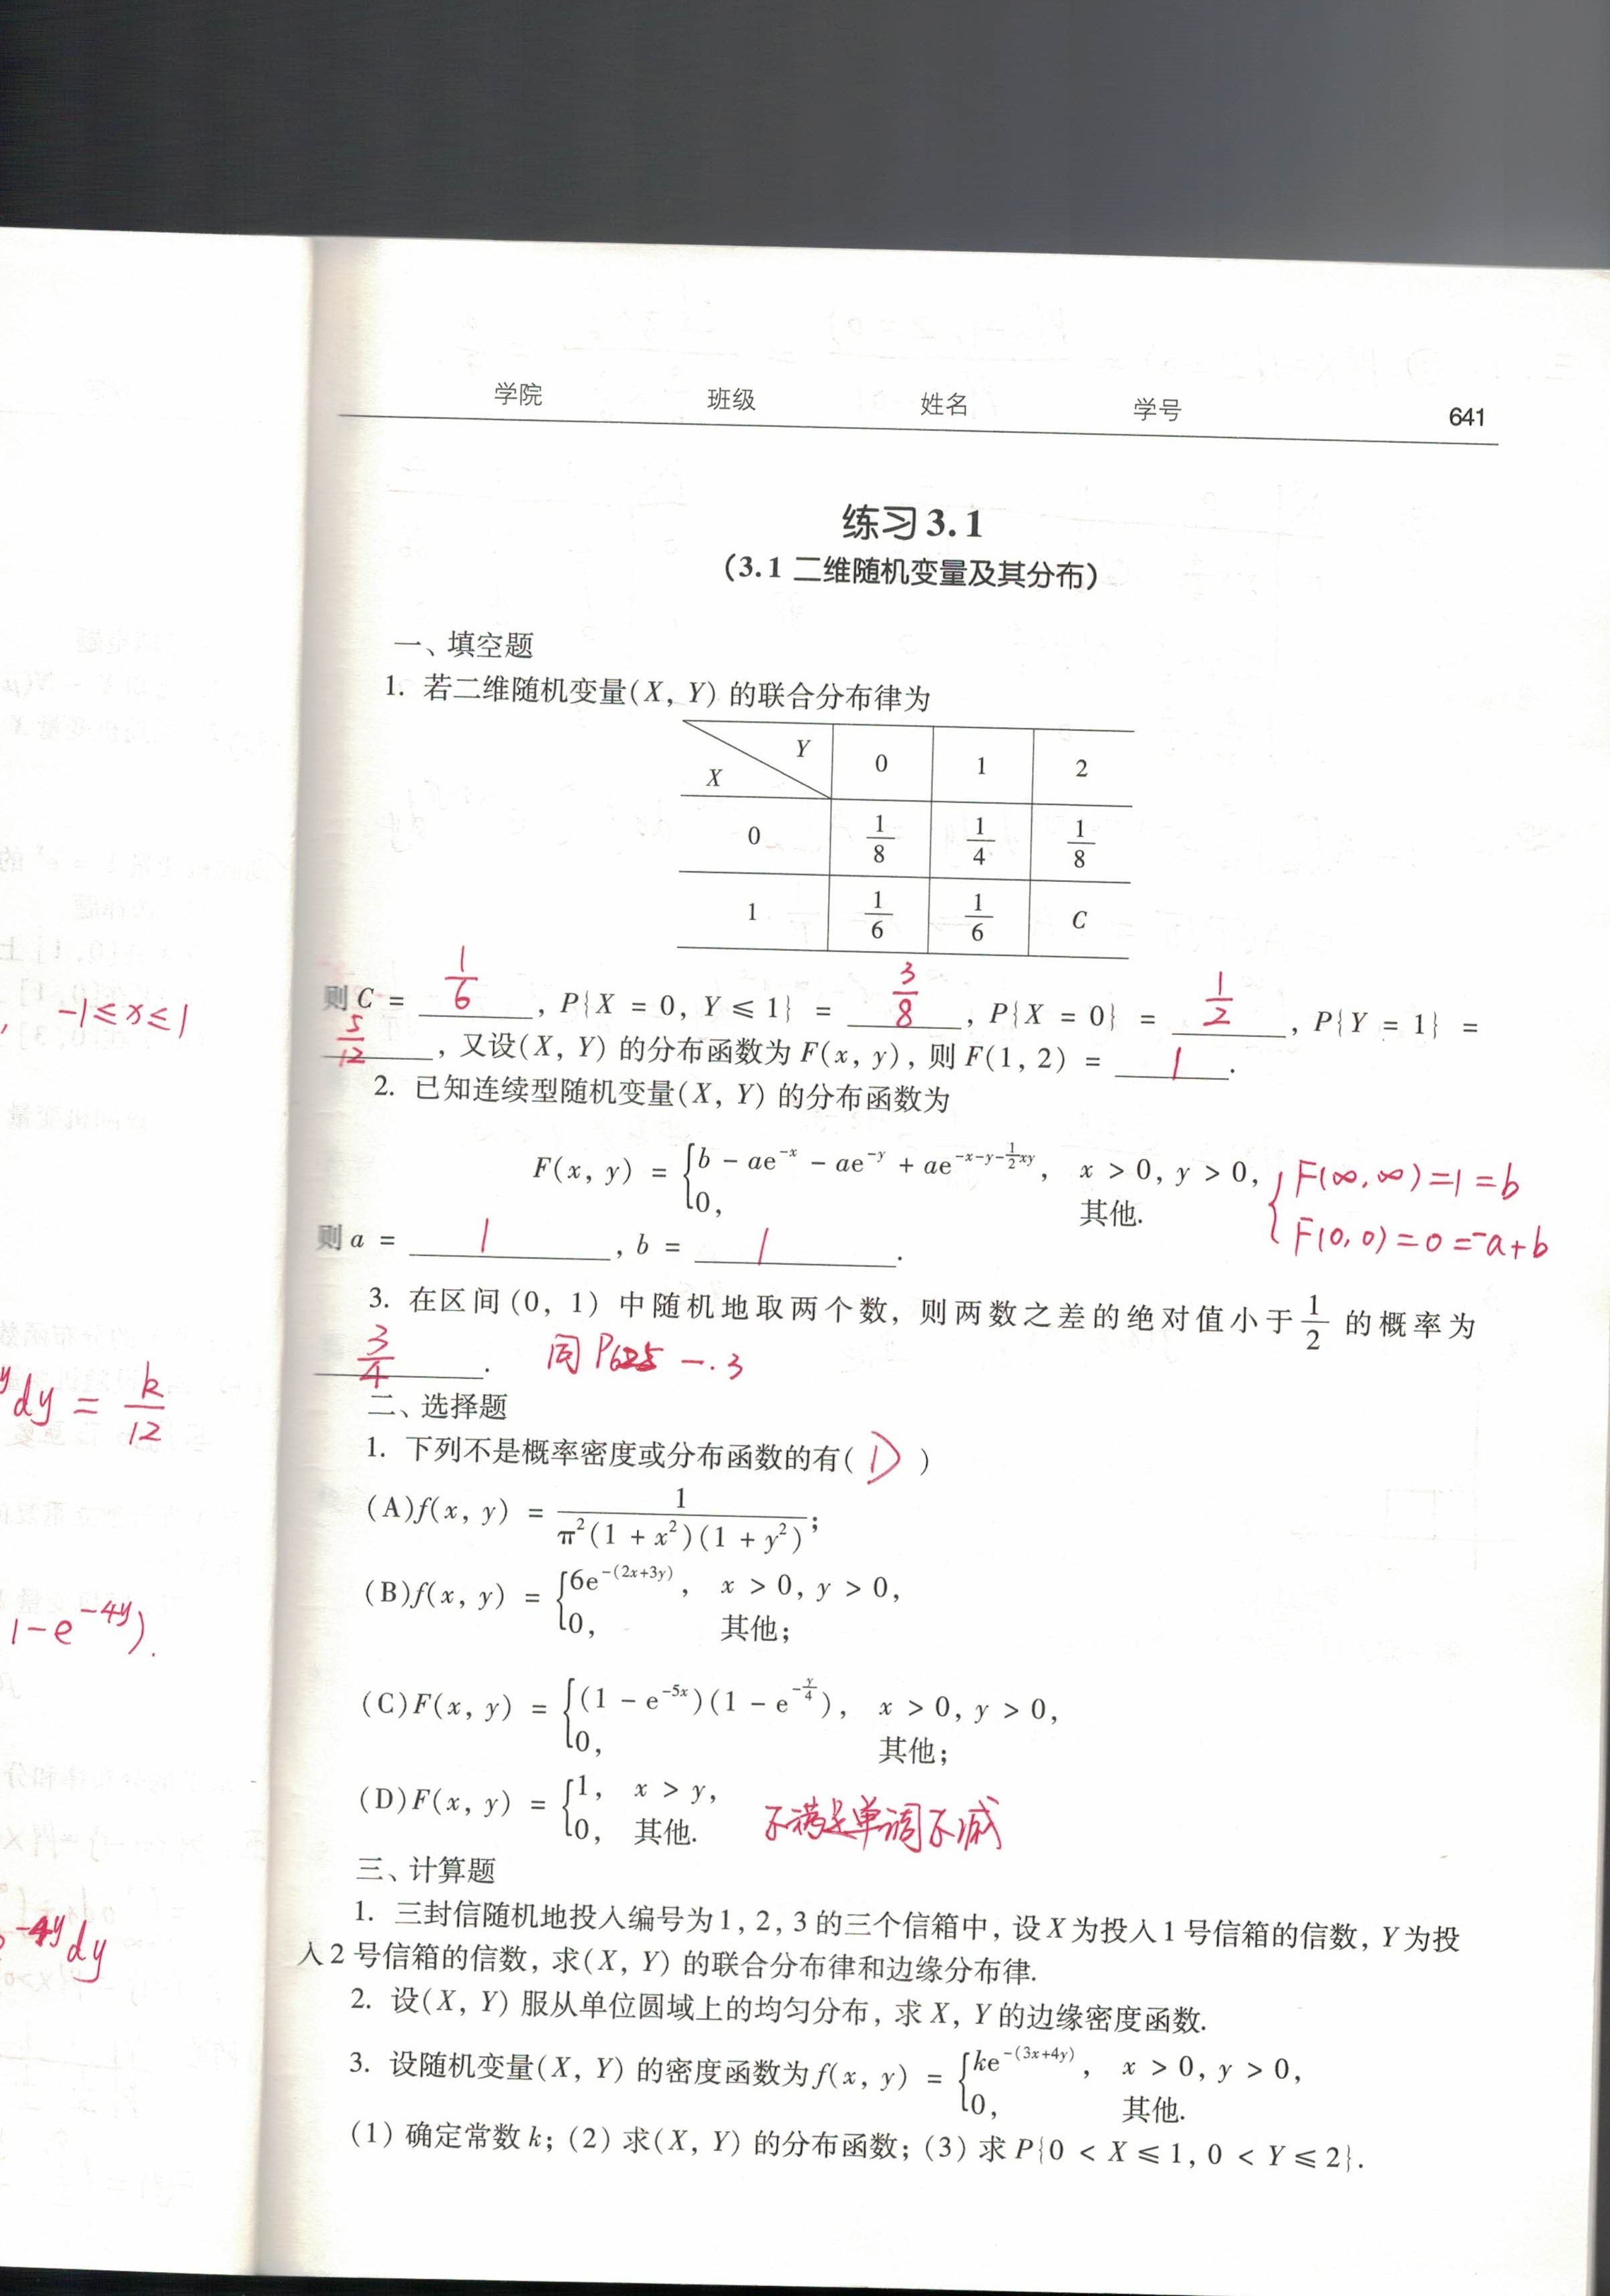 学院 班级 姓名 学号 641
练习3.1
(3.1 二维随机变量及其分布)
一、填空题
1. 若二维随机变量(X, Y) 的联合分布律为
X Y 0 1 2
0 1/8 1/4 1/8
1 1/6 1/6 C
则 C = 1/6, P{X = 0, Y ≤ 1} = 3/8, P{X = 0} = 1/2, P{Y = 1} =
5/12, 又设(X, Y) 的分布函数为 F(x, y), 则 F(1, 2) = 1.
2. 已知连续型随机变量(X, Y) 的分布函数为
F(x, y) = { b - ae^{-x} - ae^{-y} + ae^{-x-y-\frac{1}{2}xy}, x > 0, y > 0,
0, 其他.
{ F(∞, ∞) = 1 = b
F(0, 0) = 0 = -a + b
则 a = 1, b = 1.
3. 在区间(0, 1) 中随机地取两个数, 则两数之差的绝对值小于 1/2 的概率为
3/4. 同 P625 一. 3
二、选择题
1. 下列不是概率密度或分布函数的有( D )
(A)f(x, y) = 1/(π²(1 + x²)(1 + y²));
(B)f(x, y) = { 6e^{-(2x+3y)}, x > 0, y > 0,
0, 其他;
(C)F(x, y) = { (1 - e^{-5x})(1 - e^{-\frac{y}{4}}), x > 0, y > 0,
0, 其他;
(D)F(x, y) = { 1, x > y,
0, 其他. 不满足单调不减
三、计算题
1. 三封信随机地投入编号为1, 2, 3 的三个信箱中, 设 X 为投入1 号信箱的信数, Y 为投
入2 号信箱的信数, 求(X, Y) 的联合分布律和边缘分布律.
2. 设(X, Y) 服从单位圆域上的均匀分布, 求 X, Y 的边缘密度函数.
3. 设随机变量(X, Y) 的密度函数为 f(x, y) = { ke^{-(3x+4y)}, x > 0, y > 0,
0, 其他.
(1) 确定常数 k; (2) 求(X, Y) 的分布函数; (3) 求 P{0 < X ≤ 1, 0 < Y ≤ 2}.
, -1 ≤ x ≤ 1
dy = k/12
1 - e^{-4y}).
-4y dy